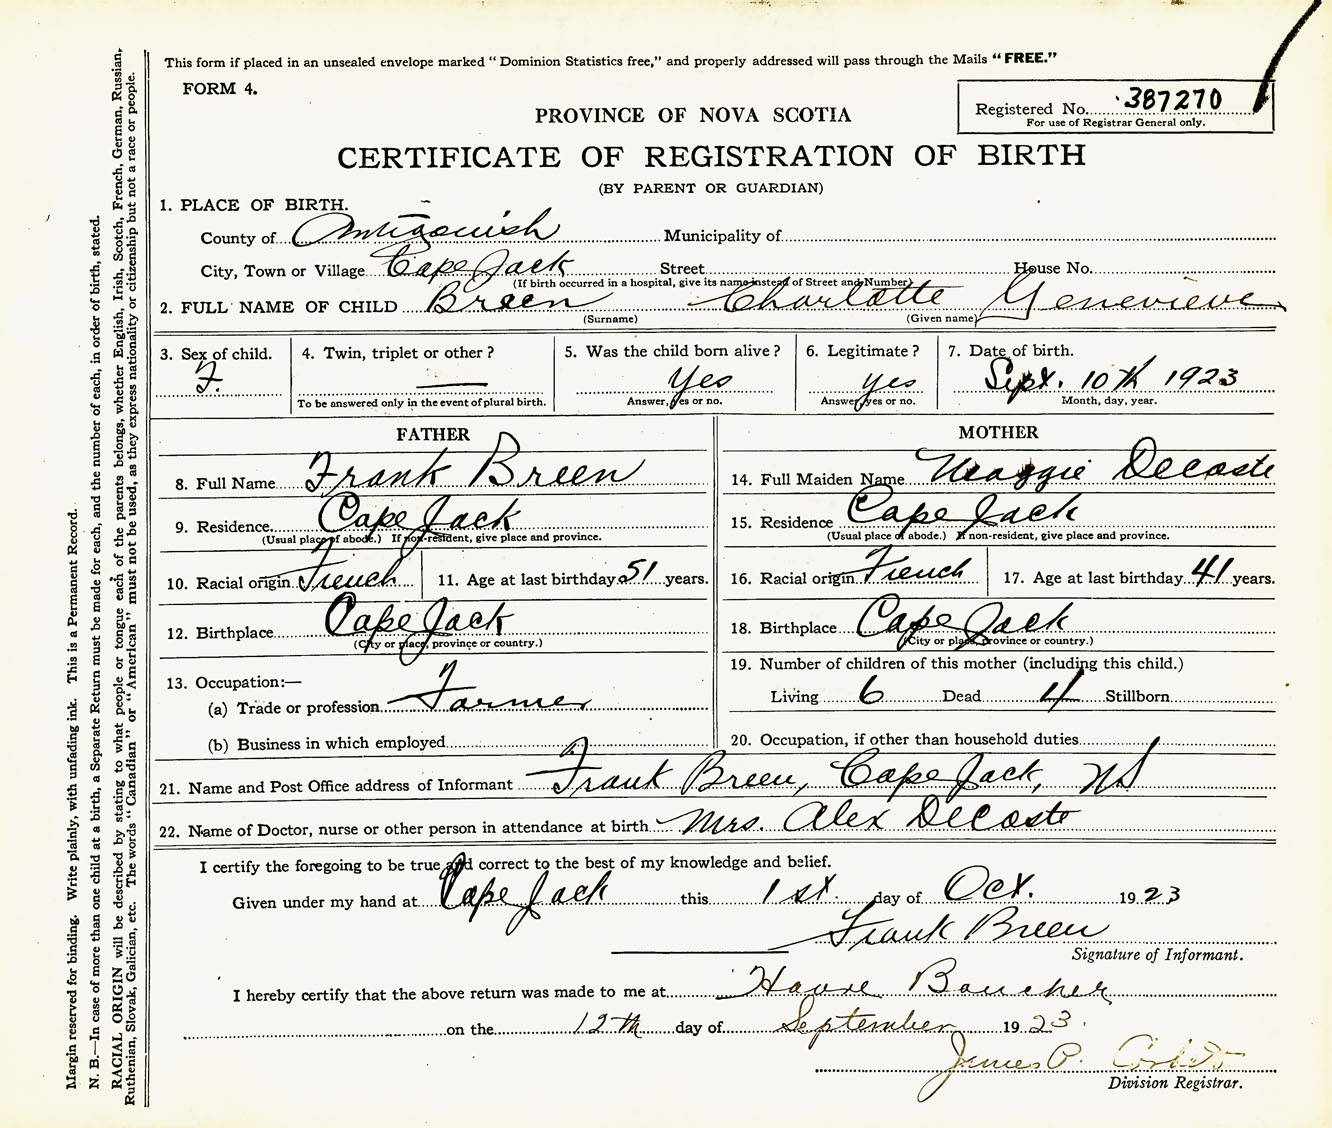 This form if placed in an unsealed envelope marked "Dominion Statistics free," and properly addressed will pass through the Mails "FREE."
FORM 4.
Registered No. 387270
For use of Registrar General only.
PROVINCE OF NOVA SCOTIA
CERTIFICATE OF REGISTRATION OF BIRTH
(BY PARENT OR GUARDIAN)
1. PLACE OF BIRTH.
County of Antigonish Municipality of
City, Town or Village Cape Jack Street House No.
(If birth occurred in a hospital, give its name instead of Street and Number)
2. FULL NAME OF CHILD Breen Charlotte Genevieve
(Surname) (Given name)
3. Sex of child. 4. Twin, triplet or other? 5. Was the child born alive? 6. Legitimate? 7. Date of birth.
F. — Yes yes Sept. 10th 1923
To be answered only in the event of plural birth. Answer, yes or no. Answer, yes or no. Month, day, year.
FATHER MOTHER
8. Full Name Frank Breen 14. Full Maiden Name Maggie Decoste
9. Residence Cape Jack 15. Residence Cape Jack
(Usual place of abode.) If non-resident, give place and province. (Usual place of abode.) If non-resident, give place and province.
10. Racial origin French 11. Age at last birthday 51 years. 16. Racial origin French 17. Age at last birthday 41 years.
12. Birthplace Cape Jack 18. Birthplace Cape Jack
(City or place, province or country.) (City or place, province or country.)
13. Occupation:— 19. Number of children of this mother (including this child.)
(a) Trade or profession Farmer Living 6 Dead 4 Stillborn
(b) Business in which employed 20. Occupation, if other than household duties
21. Name and Post Office address of Informant Frank Breen, Cape Jack, NS
22. Name of Doctor, nurse or other person in attendance at birth Mrs. Alex DeCoste
I certify the foregoing to be true and correct to the best of my knowledge and belief.
Given under my hand at Cape Jack this 1st. day of Oct. 1923
Frank Breen
Signature of Informant.
I hereby certify that the above return was made to me at Havre Boucher
on the 12th day of September 1923.
James P. Corbett
Division Registrar.
Margin reserved for binding. Write plainly, with unfading ink. This is a Permanent Record.
N. B.—In case of more than one child at a birth, a Separate Return must be made for each, and the number of each, in order of birth, stated.
RACIAL ORIGIN will be described by stating to what people or tongue each of the parents belongs, whether English, Irish, Scotch, French, German, Russian,
Ruthenian, Slovak, Galician, etc. The words "Canadian" or "American" must not be used, as they express nationality or citizenship but not a race or people.